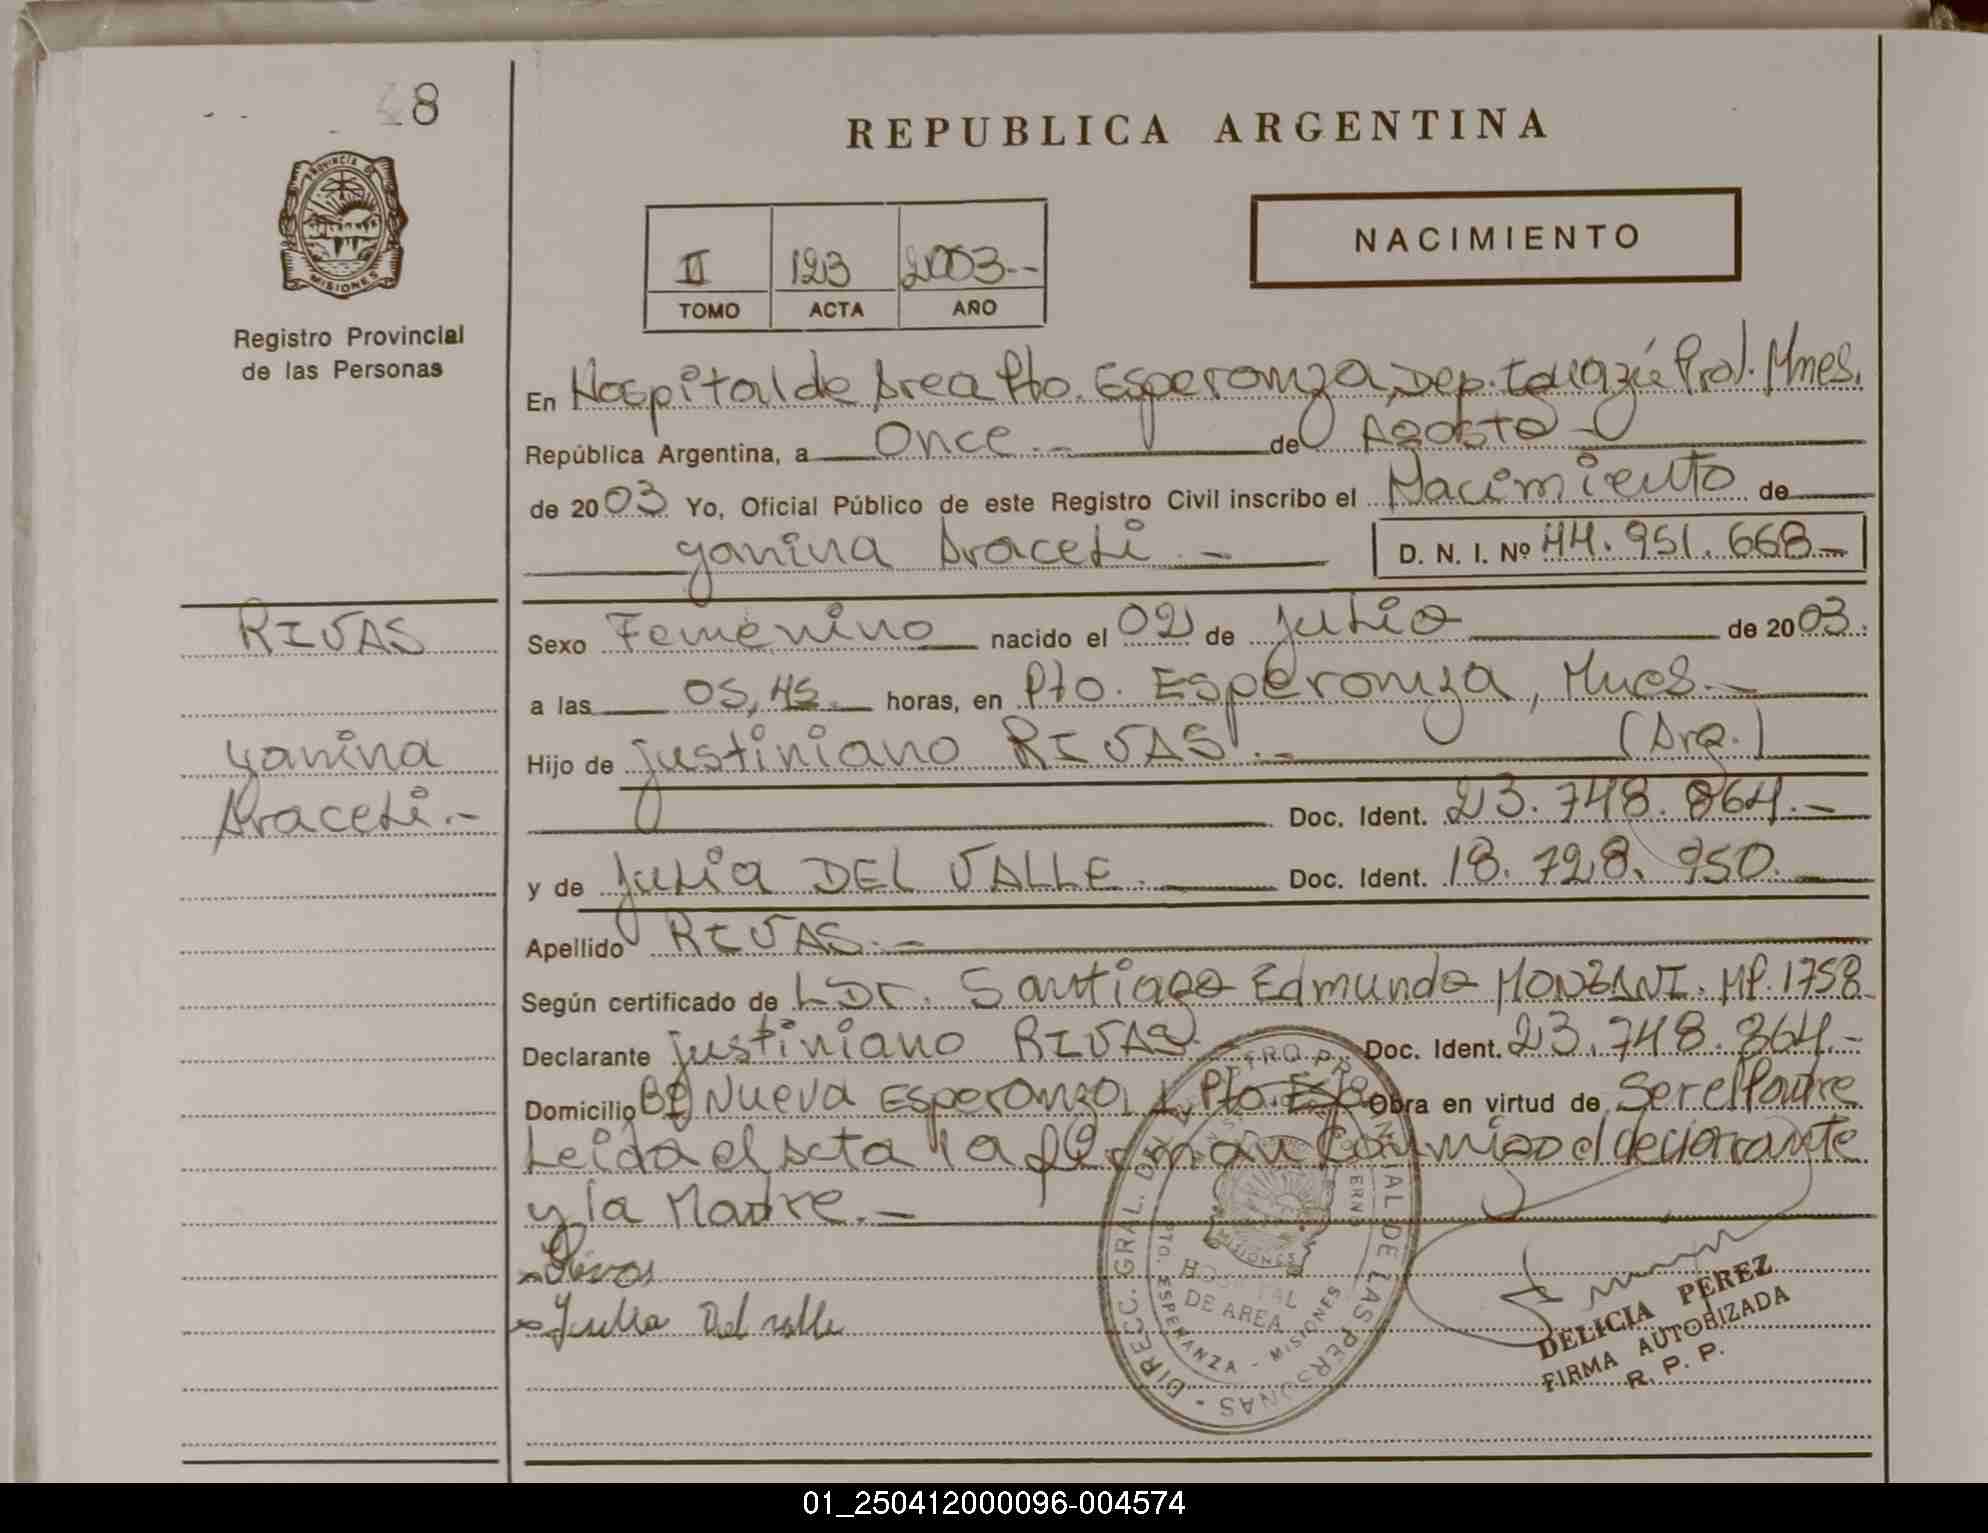 48
PROVINCIA DE
MISIONES
Registro Provincial
de las Personas
REPUBLICA ARGENTINA
II 123 2003--
TOMO ACTA AÑO
NACIMIENTO
En Hospital de Area Pto. Esperanza, Dep. Iguazú Prov. Mnes.
República Argentina, a Once.- de Agosto.-
de 2003 Yo, Oficial Público de este Registro Civil inscribo el Nacimiento de
Yanina Araceli.- D. N. I. Nº 44.951.668-
RIVAS
Yanina
Araceli.-
Sexo Femenino nacido el 02 de Julio de 2003.
a las 05,45. horas, en Pto. Esperanza, Mnes.-
Hijo de Justiniano RIVAS.- (Arg.)
Doc. Ident. 23.748.864.-
y de Julia DEL VALLE. Doc. Ident. 18.728.950.-
Apellido RIVAS.-
Según certificado de L Dr. Santiago Edmundo MONZANI. MP. 1758
Declarante Justiniano RIVAS.- Doc. Ident. 23.748.864.-
Domicilio Bº Nueva Esperanza, Pto. Esp. Obra en virtud de Ser el Padre
Leida el acta la firman conmigo el declarante
y la Madre.-
Rivas
Julia Del valle
DIRECC. GRAL. DEL REGISTRO PROVINCIAL DE LAS PERSONAS
MISIONES
HOSPITAL
DE AREA
PTO. ESPERANZA - MISIONES
DELICIA PEREZ
FIRMA AUTORIZADA
R. P. P.
01_250412000096-004574